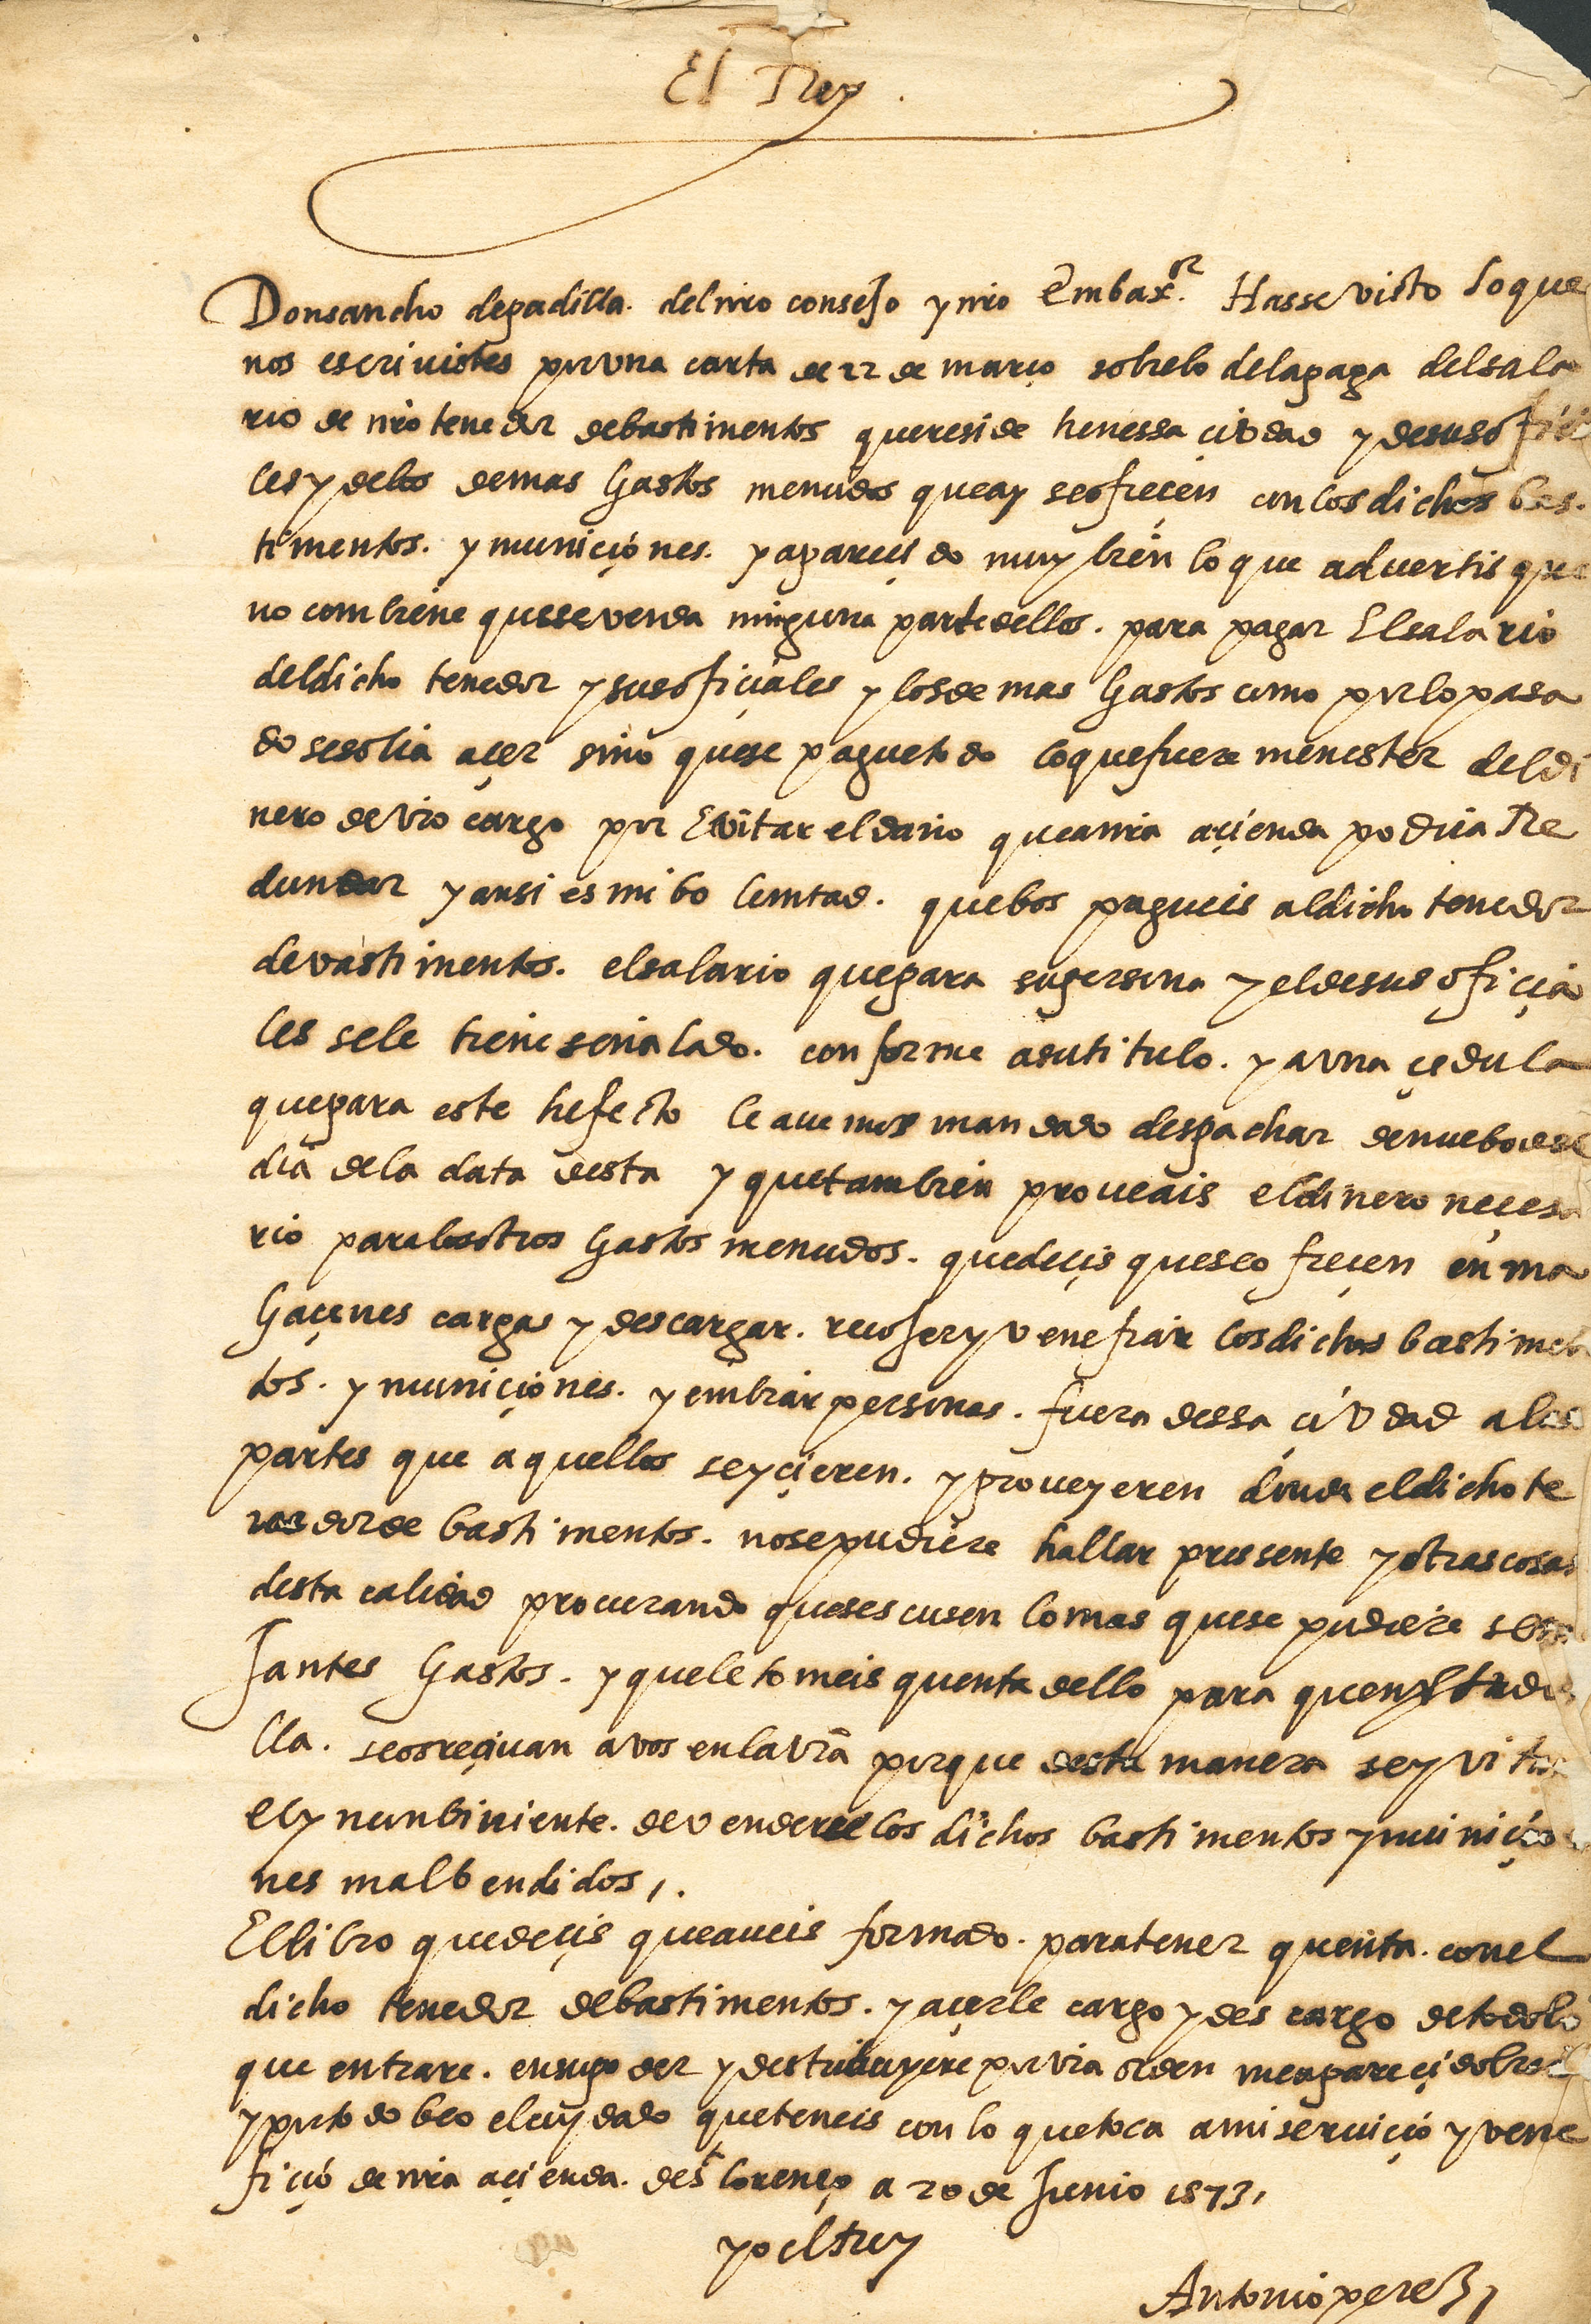 El Rey.
Don sancho de padilla. del nro consejo y nro Embax.or Hasse visto lo que
nos escriuistes por vna carta de 22 de março sobre lo de la paga del sala
rio de nro tenedor de bastimentos que reside henessa çiudad y de sus offiçi
les y delos demas Gastos menudos que ay se ofreçen con los dichos bas.
timentos. y muniçiones. y a pareçido muy bien lo que aduertis que
no combiene que sse venda ninguna parte dellos. para pagar El salario
del dicho tenedor y sus ofiçiales y los demas Gastos como por lo pasa
do se solia açer sino que se pague todo lo que fuere menester del di
nero de vro cargo por Evitar el daño que a nra açienda podria Re
dundar y ansi es mi bo luntad. que bos pagueis al dicho tenedor
de vastimentos. el salario que para su persona y el de sus ofiçia
les se le tiene señalado. conforme a su titulo. y a vna çedula
que para este hefecto le auemos mandado despachar de nuebo desde
dia de la data desta y que tambien proueais el dinero neçesa
rio para los otros Gastos menudos. que deçis que se ofreçen en ma
Gaçenes cargar y descargar. recojer y venefiar los dichos bastimen
tos. y muniçiones. y embiar personas. fuera dessa çiudad a las
partes que aquellos se yçieren. y proueyeren donde el dicho te
nedor de bastimentos. no se pudiere hallar pressente y otras cosas
desta calidad procurando que se escusen lo mas que se pudiere seme
Jantes Gastos. y que le tomeis quenta dello para que en virtud de
lla. se os reçiuan a vos en la vra porque desta manera se yvitara
el ynconbiniente. de venderse los dichos bastimentos y muniçio
nes mal bendidos,.
El libro que deçis que aueis formado. para tener quenta. con el
dicho tenedor de bastimentos. y açerle cargo y des cargo de todo lo
que entrare. en su poder y destribuyere por vra orden me a pareçido bien
y por todo beo el cuydado que teneis con lo que toca a mi seruiçio y vene
fiçio de nra açienda. de st lorenço a 20 de Junio 1573,
yo el Rey
Antonio perez,